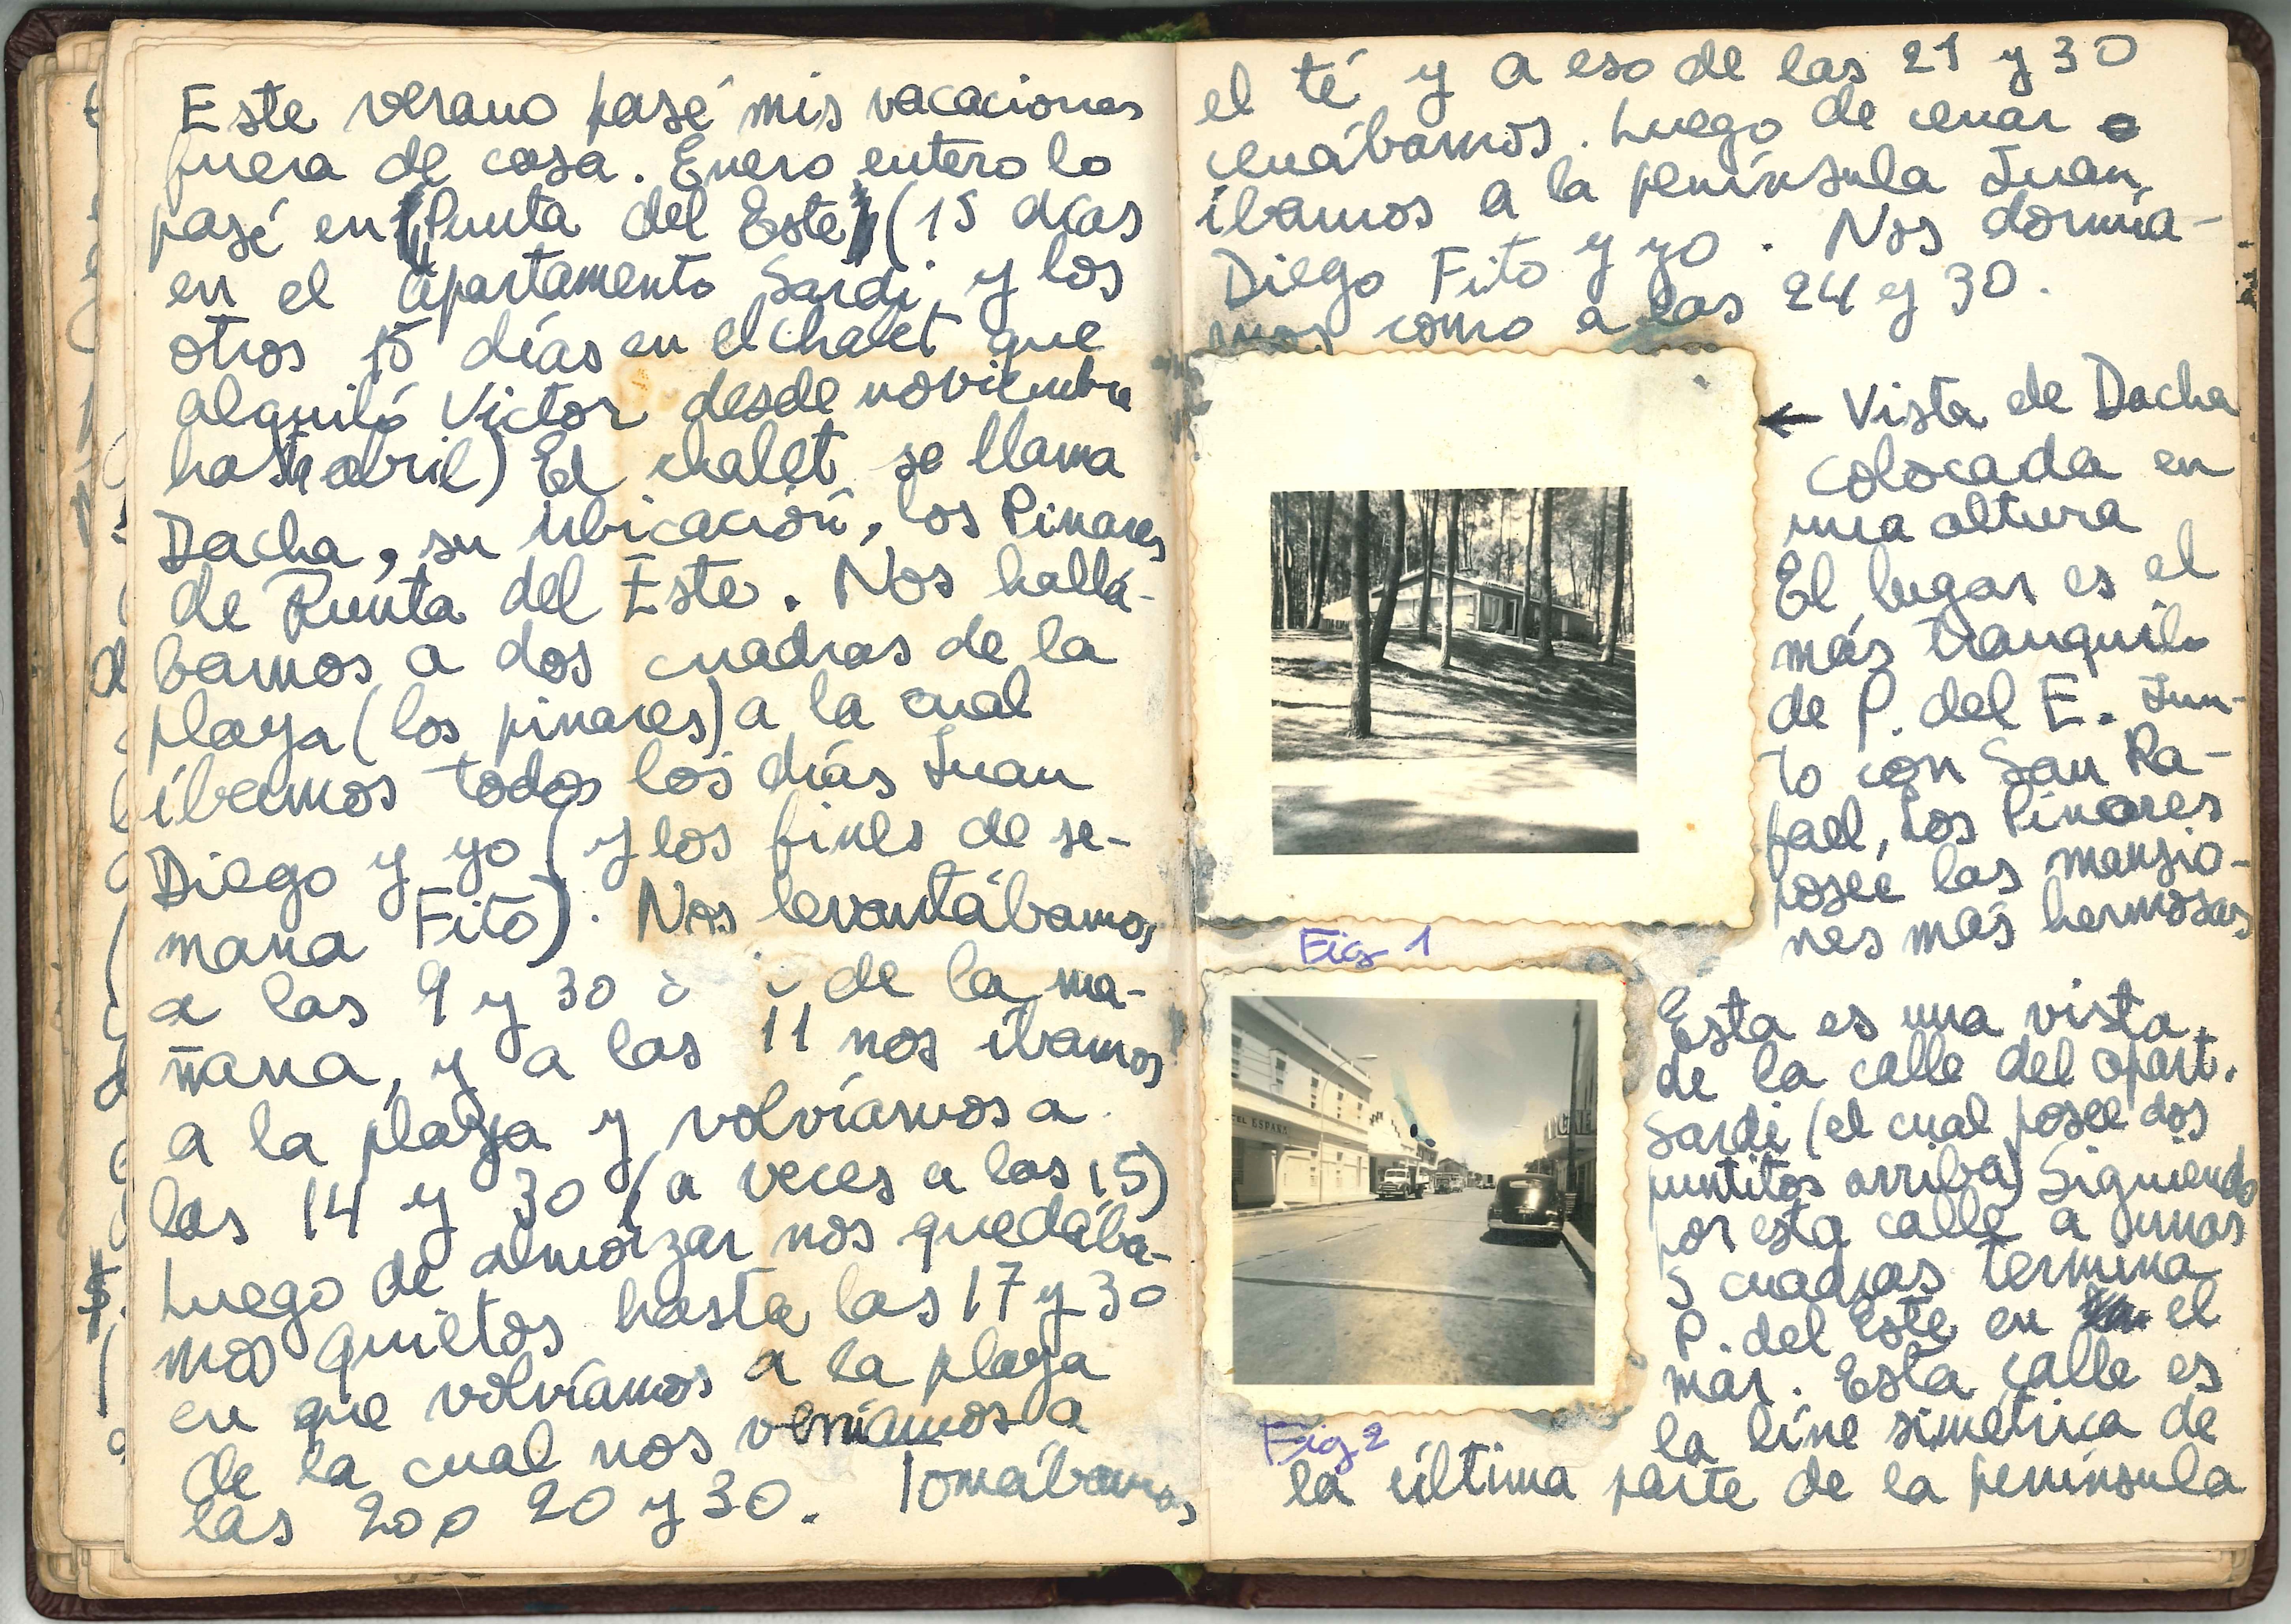 Este verano pasé mis vacaciones
fuera de casa. Enero entero lo
pasé en (Punta del Este) (15 días
en el apartamento Sardi, y los
otros 15 días en el chalet que
alquiló Victor desde noviembre
hasta abril) El chalet se llama
Dacha, su ubicación, los Pinares
de Punta del Este. Nos hallá-
bamos a dos cuadras de la
playa (los pinares) a la cual
íbamos todos los días Juan
Diego y yo (y los fines de se-
mana Fito). Nos levantábamos
a las 9 y 30 de la ma-
ñana, y a las 11 nos íbamos
a la playa y volvíamos a
las 14 y 30 (a veces a las 15)
Luego de almorzar nos quedába-
mos quietos hasta las 17 y 30
en que volvíamos a la playa
de la cual nos veníamos a
las 20 o 20 y 30. Tomábamos
el té y a eso de las 21 y 30
cenábamos. Luego de cenar
íbamos a la península Juan
Diego Fito y yo. Nos dormía-
mos como a las 24 y 30.
← Vista de Dacha
colocada en
una altura
El lugar es el
más tranquilo
de P. del E. Jun-
to con San Ra-
fael, Los Pinares
posee las mansio-
nes más hermosas
Fig 1
EL ESPAÑA
Esta es una vista
de la calle del apart.
Sardi (el cual posee dos
puntitos arriba) Siguiendo
por esta calle a unas
5 cuadras termina
P. del Este en el
mar. Esta calle es
la líne simétrica de
Fig 2
la última parte de la península